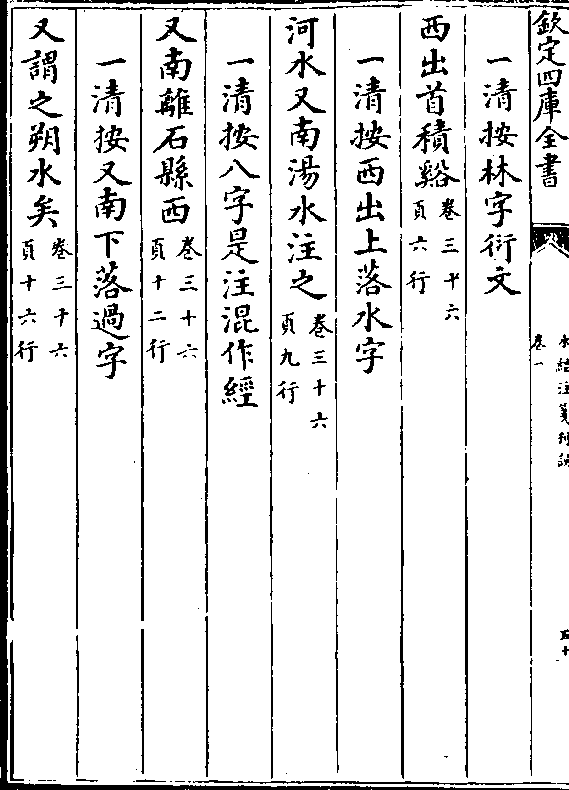 欽定四庫全書
水經注箋刊誤
卷一
一清按林字衍文
西出首積谿卷三十六頁六行
一清按西出上落水字
河水又南湯水注之卷三十六頁九行
一清按八字是注混作經
又南離石縣西卷三十六頁十二行
一清按又南下落過字
又謂之朔水矣卷三十六頁十六行